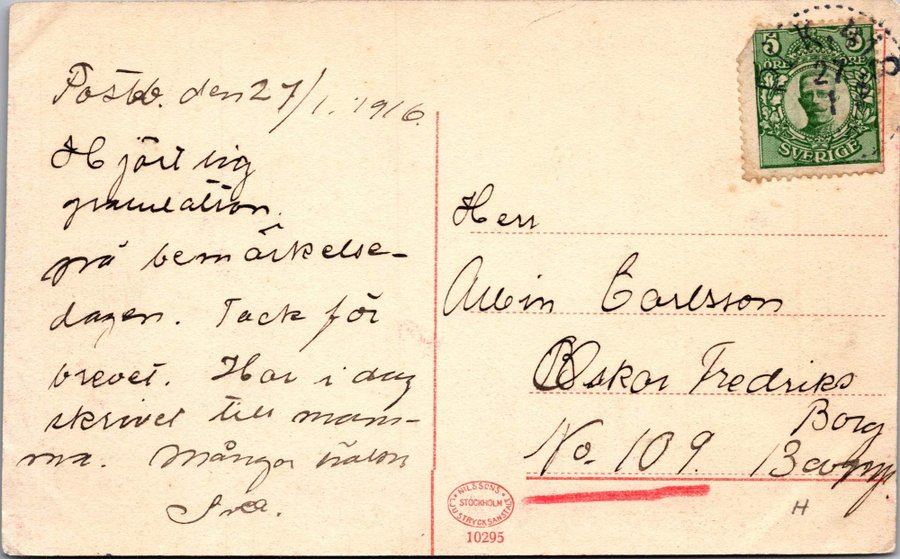 den 27/1. 1916.
Hjärtlig
gratulation.
på bemärkelse-
dagen. Tack för
brevet. Har i dag
skrivet till mam-
ma. Många
Svea.
5 ÖRE
SVERIGE
27
1
Herr
Albin Carlsson
Oskar Fredriks
Borg
No. 109.
NILSSONS
STOCKHOLM
LJUSTRYCKSANSTALT
10295
H